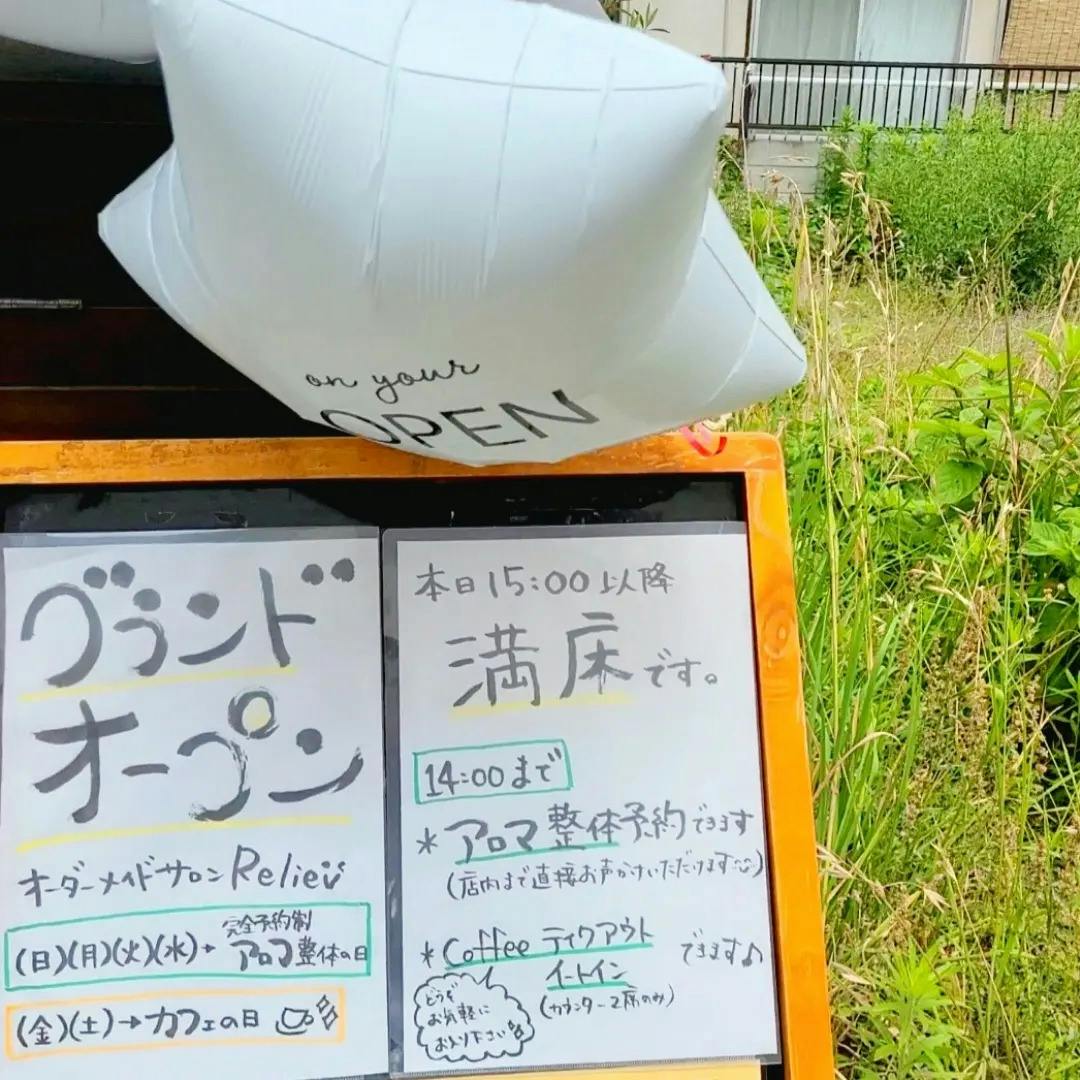 on your
OPEN
グランド
オープン
オーダーメイドサロン Relier
(日)(月)(火)(水)→完全予約制 アロマ整体の日
(金)(土)→カフェの日
本日15:00以降
満床です。
14:00まで
*アロマ整体予約できます
(店内まで直接お声かけいただけます)
*Coffee テイクアウト
イートイン できます♪
(カウンター2席のみ)
どうぞ
お気軽に
お入り下さい